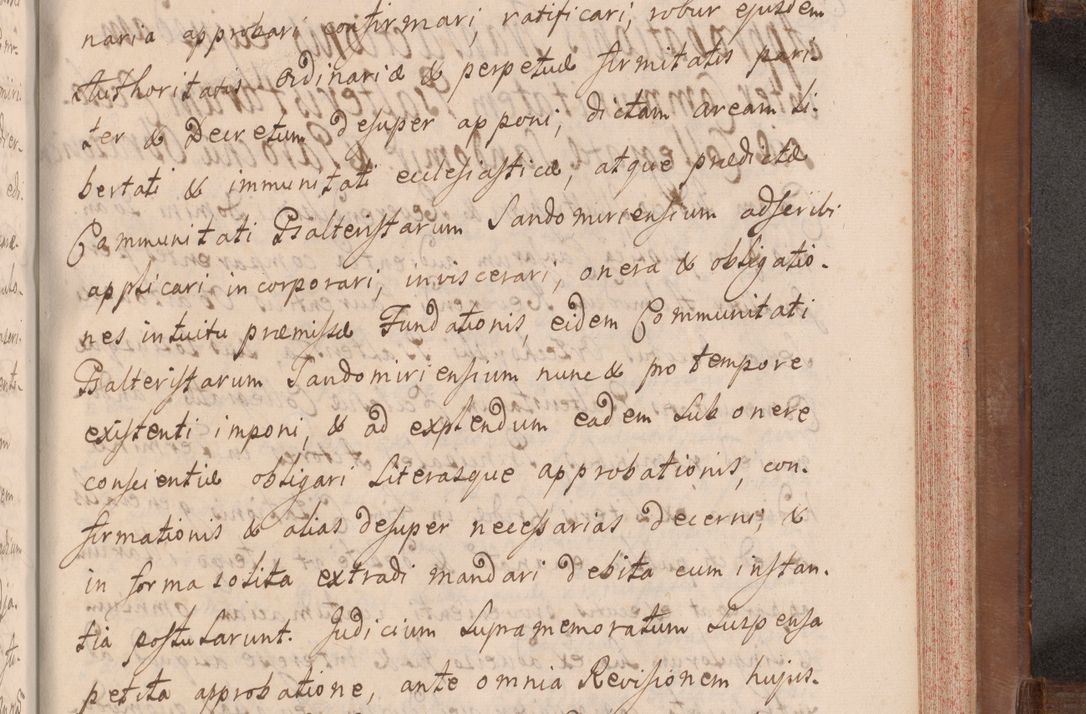 naria approbari confirmari, ratificari, robur ejusdem
Authoritatis Ordinariæ & perpetuæ firmitatis pari-
ter & Decretum desuper apponi, dictam aream Li-
bertati & immunitati ecclesiasticæ, atque prædictæ
Communitati Psalteristarum Sandomiriensium adscribi
applicari, incorporari, inviscerari, onera & obligatio-
nes intuitu præmissæ Fundationis, eidem Communitati
Psalteristarum Sandomiriensium nunc & pro tempore
existenti imponi, & ad explendum eadem sub onere
conscientiæ obligari Literasque approbationis, con-
firmationis & alias desuper necessarias decerni, &
in forma solita extradi mandari debita cum instan-
tia postularunt. Judicium Supramemoratum suspensa
petita approbatione, ante omnia Revisionem hujus-